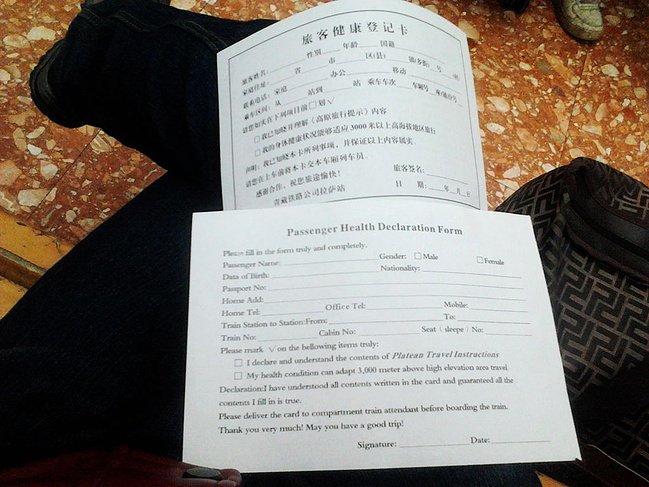 旅客健康登记卡
旅客姓名:________性别____年龄____国籍____
家庭住址:____省____市____区(县)____镇(乡)街__号__(码)
联系电话:家庭________办公________移动________
乘车区间:从____站到____站 乘车车次____车厢号__座(铺)位号__
请您如实在下列项目前□划√
□我已知晓并理解《高原旅行提示》内容
□我的身体健康状况能够适应3000米以上高海拔地区旅行
声明:我已知晓本卡所列事项,并保证以上内容属实.
请您在上车前将本卡交本车厢列车员.
感谢合作,祝您旅途愉快! 旅客签名:________
青藏铁路公司拉萨站 日 期:____年__月__日
Passenger Health Declaration Form
Please fill in the form truly and completely.
Passenger Name:________ Gender: □ Male □ Female
Date of Birth:________ Nationality:________
Passport No:________
Home Add:________
Home Tel:________ Office Tel:________ Mobile:________
Train Station to Station:From:________ To:________
Train No:________ Cabin No:________ Seat ( sleepe ) No:________
Please mark √ on the bellowing items truly:
□ I declare and understand the contents of Platean Travel Instructions
□ My health condition can adapt 3,000 meter above high elevation area travel
Declaration:I have understood all contents written in the card and guaranteed all the
contents I fill in is true.
Please deliver the card to compartment train attendant before boarding the train.
Thank you very much! May you have a good trip!
Signature:________ Date:________